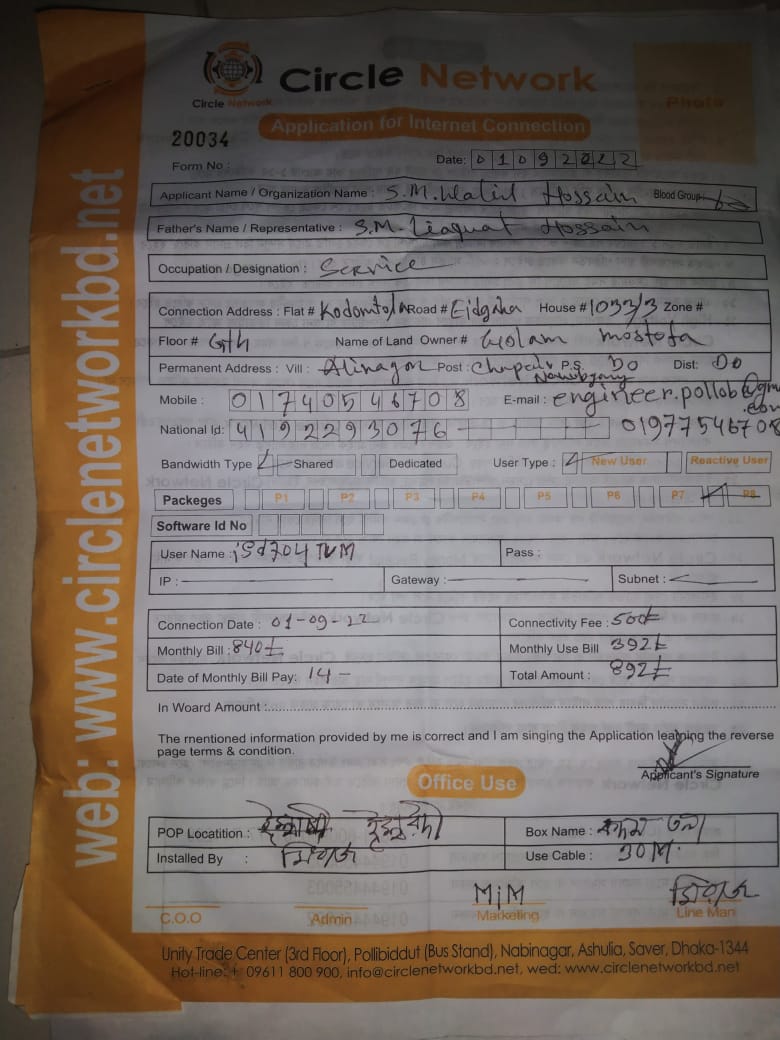 Circle Network
Circle Network
Photo
Application for Internet Connection
20034
Form No :
Date: 01092022
Applicant Name / Organization Name : S.M. Walid Hossain Blood Group:
Father's Name / Representative : S.M. Liaquat Hossain
Occupation / Designation : Service
Connection Address : Flat # Kodomtola Road # Eidgaha House # 1033/3 Zone #
Floor # 6th Name of Land Owner # Golam mostofa
Permanent Address : Vill : Alinagor Post : Chapai Nawabgong P.S. Do Dist: Do
Mobile : 01740546708 E-mail : engineer.pollob@gm
.com
National Id: 4192293076 01977546708
Bandwidth Type Shared Dedicated User Type : New User Reactive User
Packeges P1 P2 P3 P4 P5 P6 P7 P8
Software Id No
User Name : isd704 Pass :
IP : Gateway : Subnet :
Connection Date : 01-09-22 Connectivity Fee : 500৳
Monthly Bill : 840৳ Monthly Use Bill 392৳
Date of Monthly Bill Pay: 14 - Total Amount : 892৳
In Woard Amount :
The mentioned information provided by me is correct and I am singing the Application learning the reverse
page terms & condition.
Applicant's Signature
Office Use
POP Locatition : Box Name : কদম তলা
Installed By : মিরাজ Use Cable : 30M.
MiM মিরাজ
C.O.O Admin Marketing Line Man
Unity Trade Center (3rd Floor), Pollibiddut (Bus Stand), Nabinagar, Ashulia, Saver, Dhaka-1344
Hot-line: + 09611 800 900, info@circlenetworkbd.net, wed: www.circlenetworkbd.net
web: www.circlenetworkbd.net